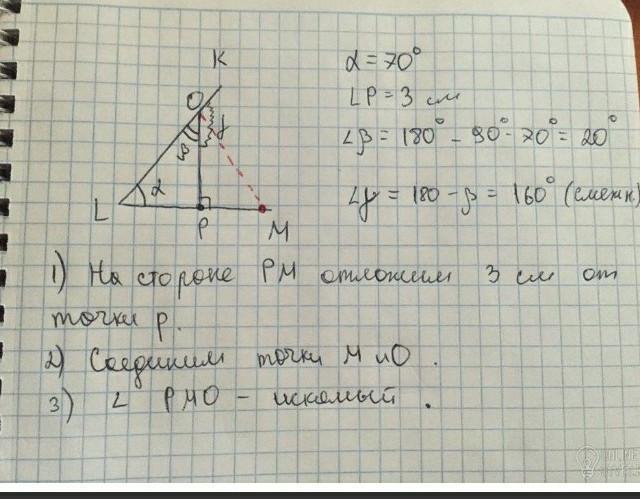 K
α = 70°
O
LP = 3 см
γ
β
∠β = 180° - 90° - 70° = 20°
α
∠γ = 180 - β = 160° (смежн)
L
P
M
1) На стороне PM отложим 3 см от
точки P.
2) Соединим точки M и O.
3) ∠ PMO - искомый.